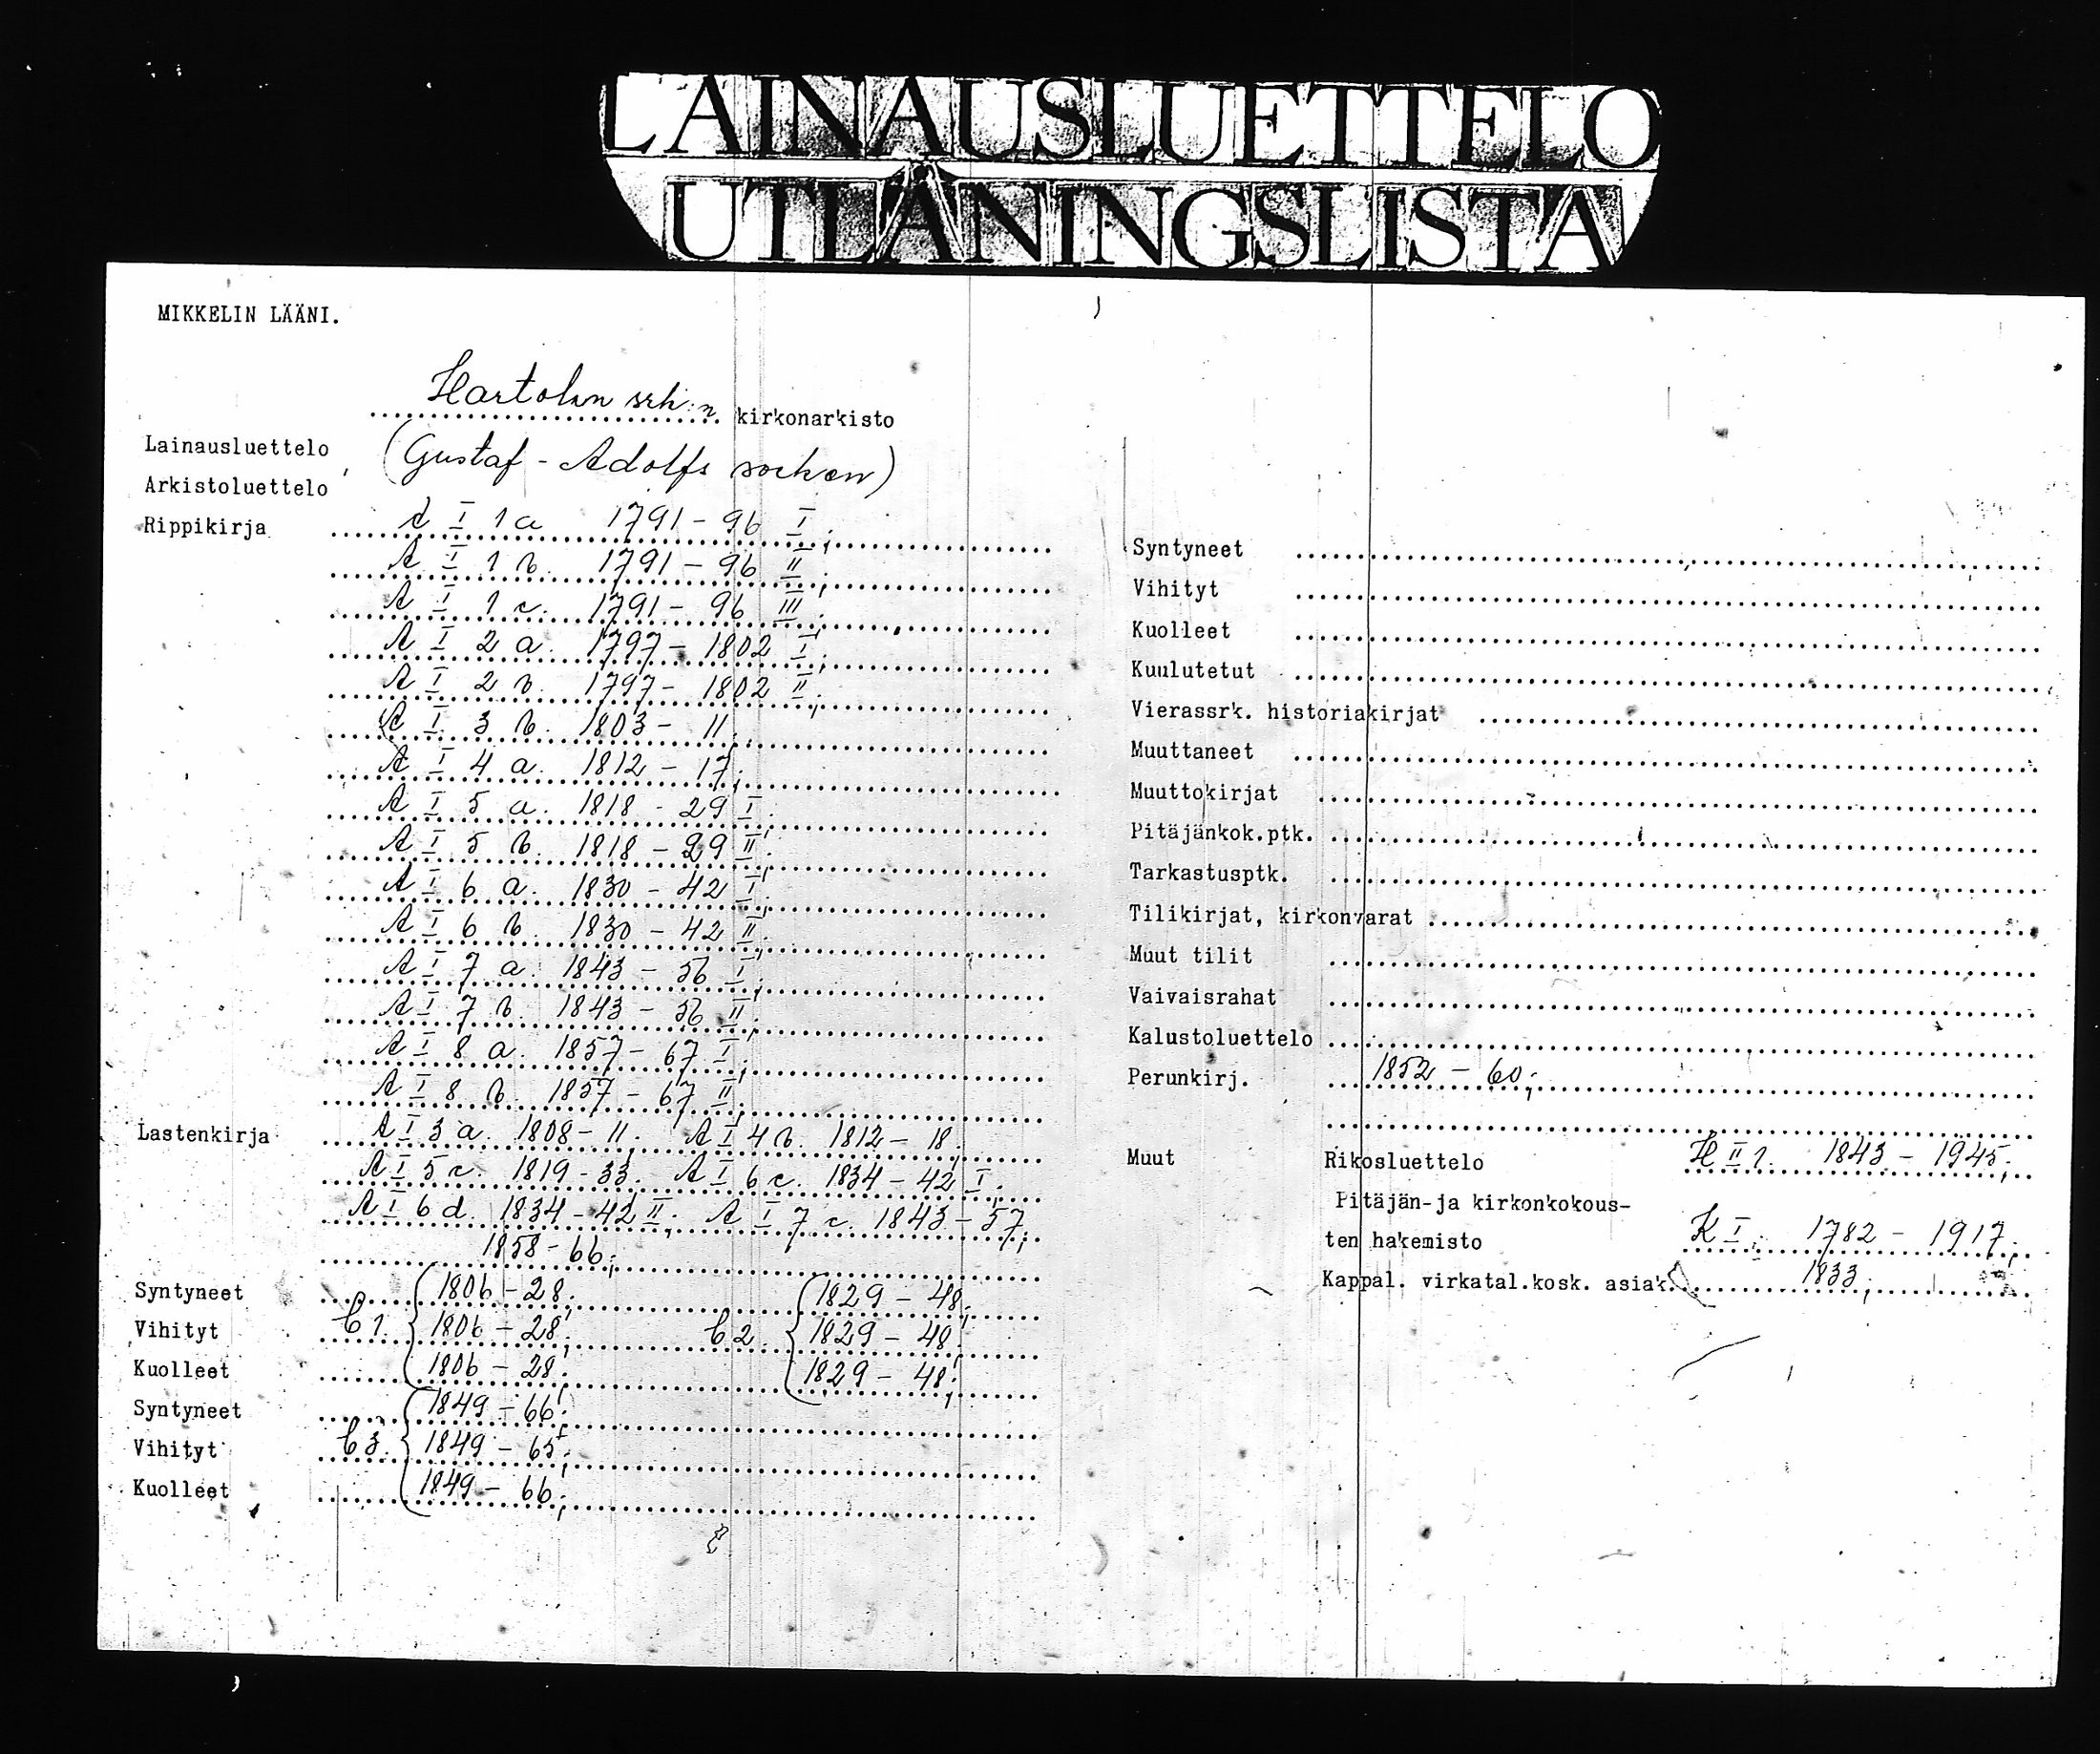 LAINAUSLUETTELO
UTLÅNINGSLISTA
MIKKELIN LÄÄNI.
Hartolan srk:n kirkonarkisto
Lainausluettelo (Gustaf-Adolfs socken)
Arkistoluettelo
Rippikirja A I 1 a 1791-96 I;
A I 1 b. 1791-96 II;
A I 1 c. 1791-96 III;
A I 2 a. 1797-1802 I;
A I 2 b. 1797-1802 II;
A I 3 b. 1803-11;
A I 4 a. 1812-17;
A I 5 a. 1818-29 I;
A I 5 b. 1818-29 II;
A I 6 a. 1830-42 I;
A I 6 b. 1830-42 II;
A I 7 a. 1843-56 I;
A I 7 b. 1843-56 II;
A I 8 a. 1857-67 I;
A I 8 b. 1857-67 II;
Lastenkirja A I 3 a. 1808-11. A I 4 b. 1812-18;
A I 5 c. 1819-33. A I 6 c. 1834-42 I;
A I 6 d. 1834-42 II; A I 7 c. 1843-57;
1858-66;
Syntyneet 1806-28; 1829-48;
Vihityt C 1. 1806-28; C 2. 1829-48;
Kuolleet 1806-28; 1829-48;
Syntyneet 1849-66;
Vihityt C 3. 1849-65;
Kuolleet 1849-66;
Syntyneet
Vihityt
Kuolleet
Kuulutetut
Vierassrk. historiakirjat
Muuttaneet
Muuttokirjat
Pitäjänkok.ptk.
Tarkastusptk.
Tilikirjat, kirkonvarat
Muut tilit
Vaivaisrahat
Kalustoluettelo
Perunkirj. 1852-60;
Muut Rikosluettelo H II 1. 1843-1945;
Pitäjän-ja kirkonkokous-
ten hakemisto K I. 1782-1917;
Kappal. virkatal.kosk. asiak. 1833;